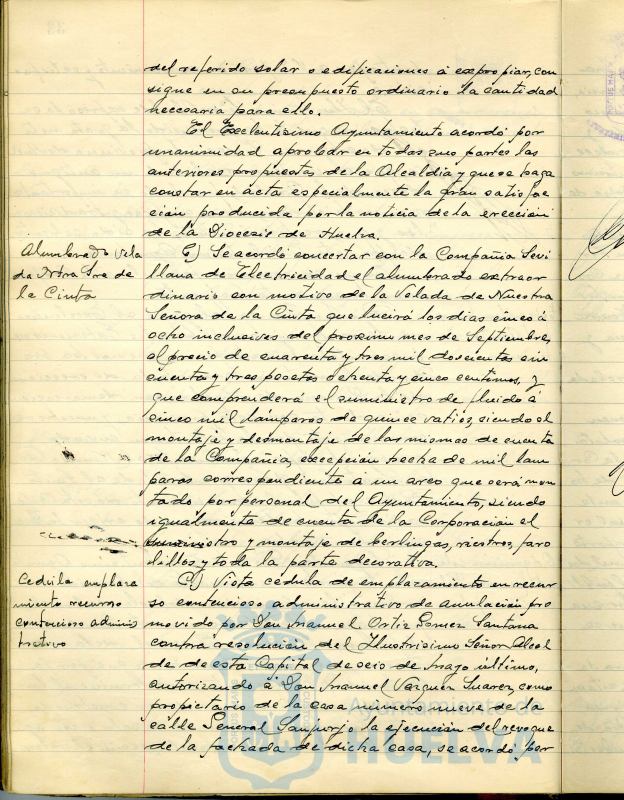 del referido solar o edificaciones a expropiar, con
signe en su presupuesto ordinario la cantidad
necesaria para ello.
El Excelentísimo Ayuntamiento acordó por
unanimidad aprobar en todas sus partes las
anteriores propuestas de la Alcaldía y que se haga
constar en acta especialmente la gran satisfac
ción producida por la noticia de la erección
de la Diocesis de Huelva.
Alumbrado Vela
da Ntra Sra de
la Cinta
Se acordó concertar con la Compañia Sevi
llana de Electricidad el alumbrado extraor
dinario con motivo de la Velada de Nuestra
Señora de la Cinta que lucirá los dias cinco á
ocho inclusives del proximo mes de Septiembre,
al precio de cuarenta y tres mil doscientas cin
cuenta y tres pesetas ochenta y cinco centimos, y
que comprenderá el suministro de fluido á
cinco mil lámparas de quince vatios, siendo el
montaje y desmontaje de las mismas de cuenta
de la Compañia, excepción hecha de mil lam
paras correspondiente á un arco que será mon
tado por personal del Ayuntamiento, siendo
igualmente de cuenta de la Corporación el
suministro y montaje de berlingas, riostras, faro
lillos y toda la parte decorativa.
Cedula emplaza
miento recurso
contencioso adminis
trativo
C) Vista cédula de emplazamiento en recur
so contencioso administrativo de anulación pro
movido por Don Manuel Ortiz Gomez Santana
contra resolución del Ilustrisimo Señor Alcal
de de esta Capital de seis de Mayo último,
autorizando á Don Manuel Vazquez Suarez, como
propietario de la casa número nueve de la
calle General Sanjurjo la ejecución del revoque
de la fachada de dicha casa, se acordó por
Ayuntamiento de
HUELVA